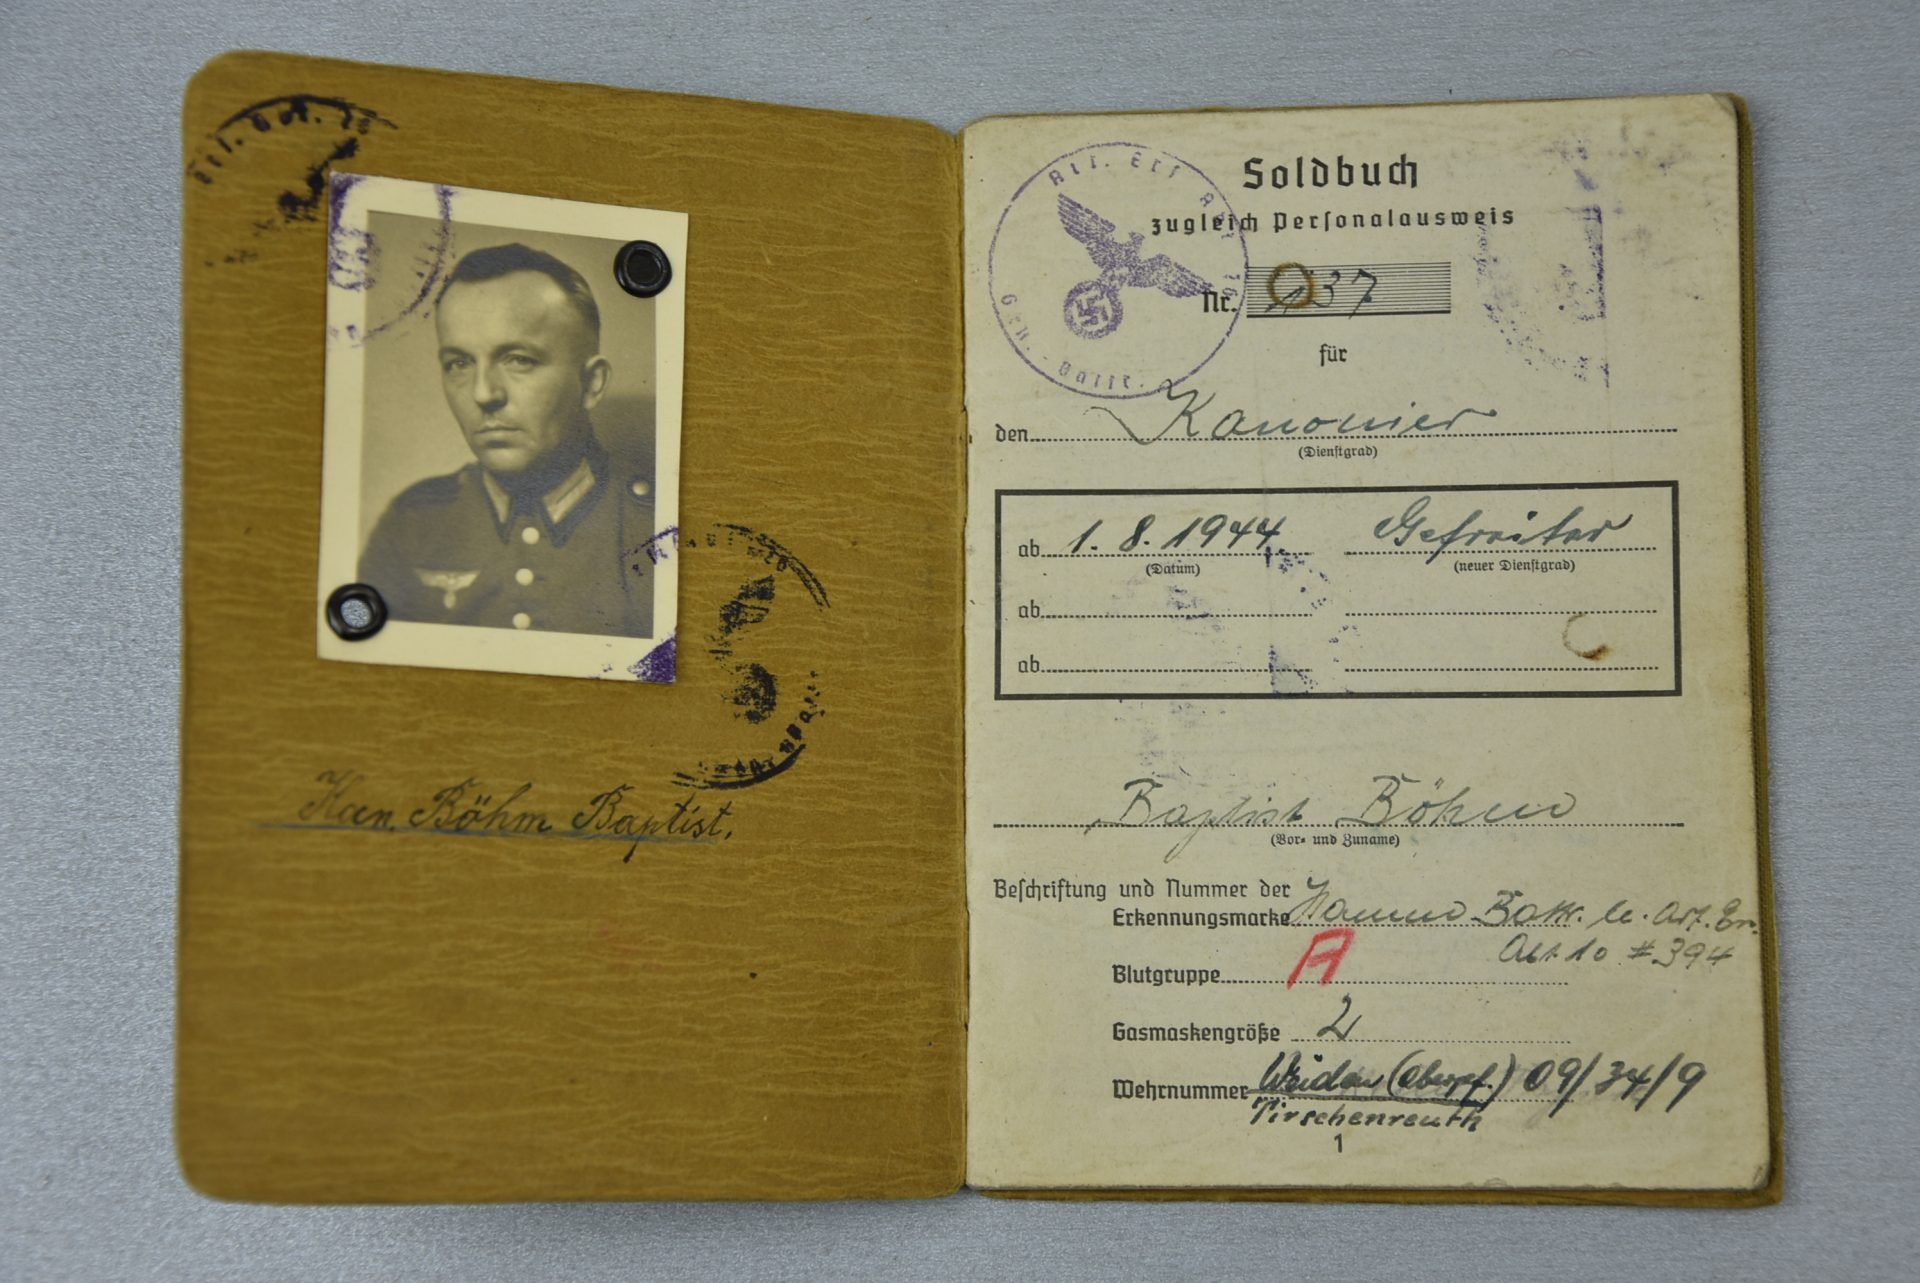 Art. Ers.
Kan. Böhm Baptist.
Art. Ers. Abt.
Gen. - Battr.
Soldbuch
zugleich Personalausweis
Nr. 137
für
den Kanonier
(Dienstgrad)
ab 1. 8. 1944 Gefreiter
(Datum) (neuer Dienstgrad)
ab
ab
Baptist Böhm
(Vor- und Zuname)
Beschriftung und Nummer der
Erkennungsmarke Battr. le. Art. Er.
Abt. 10 #.394
Blutgruppe A
Gasmaskengröße 2
Wehrnummer Weiden (Oberpf.) 09/34/9
Tirschenreuth
1